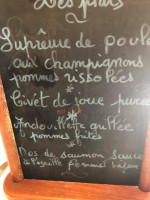 Des plats
Suprême de poula
aux champignons
pommes rissolées
Civet de joue puree
Andouillette grillée
pommes frites
Dos de saumon sauce
à l'oseille pommes